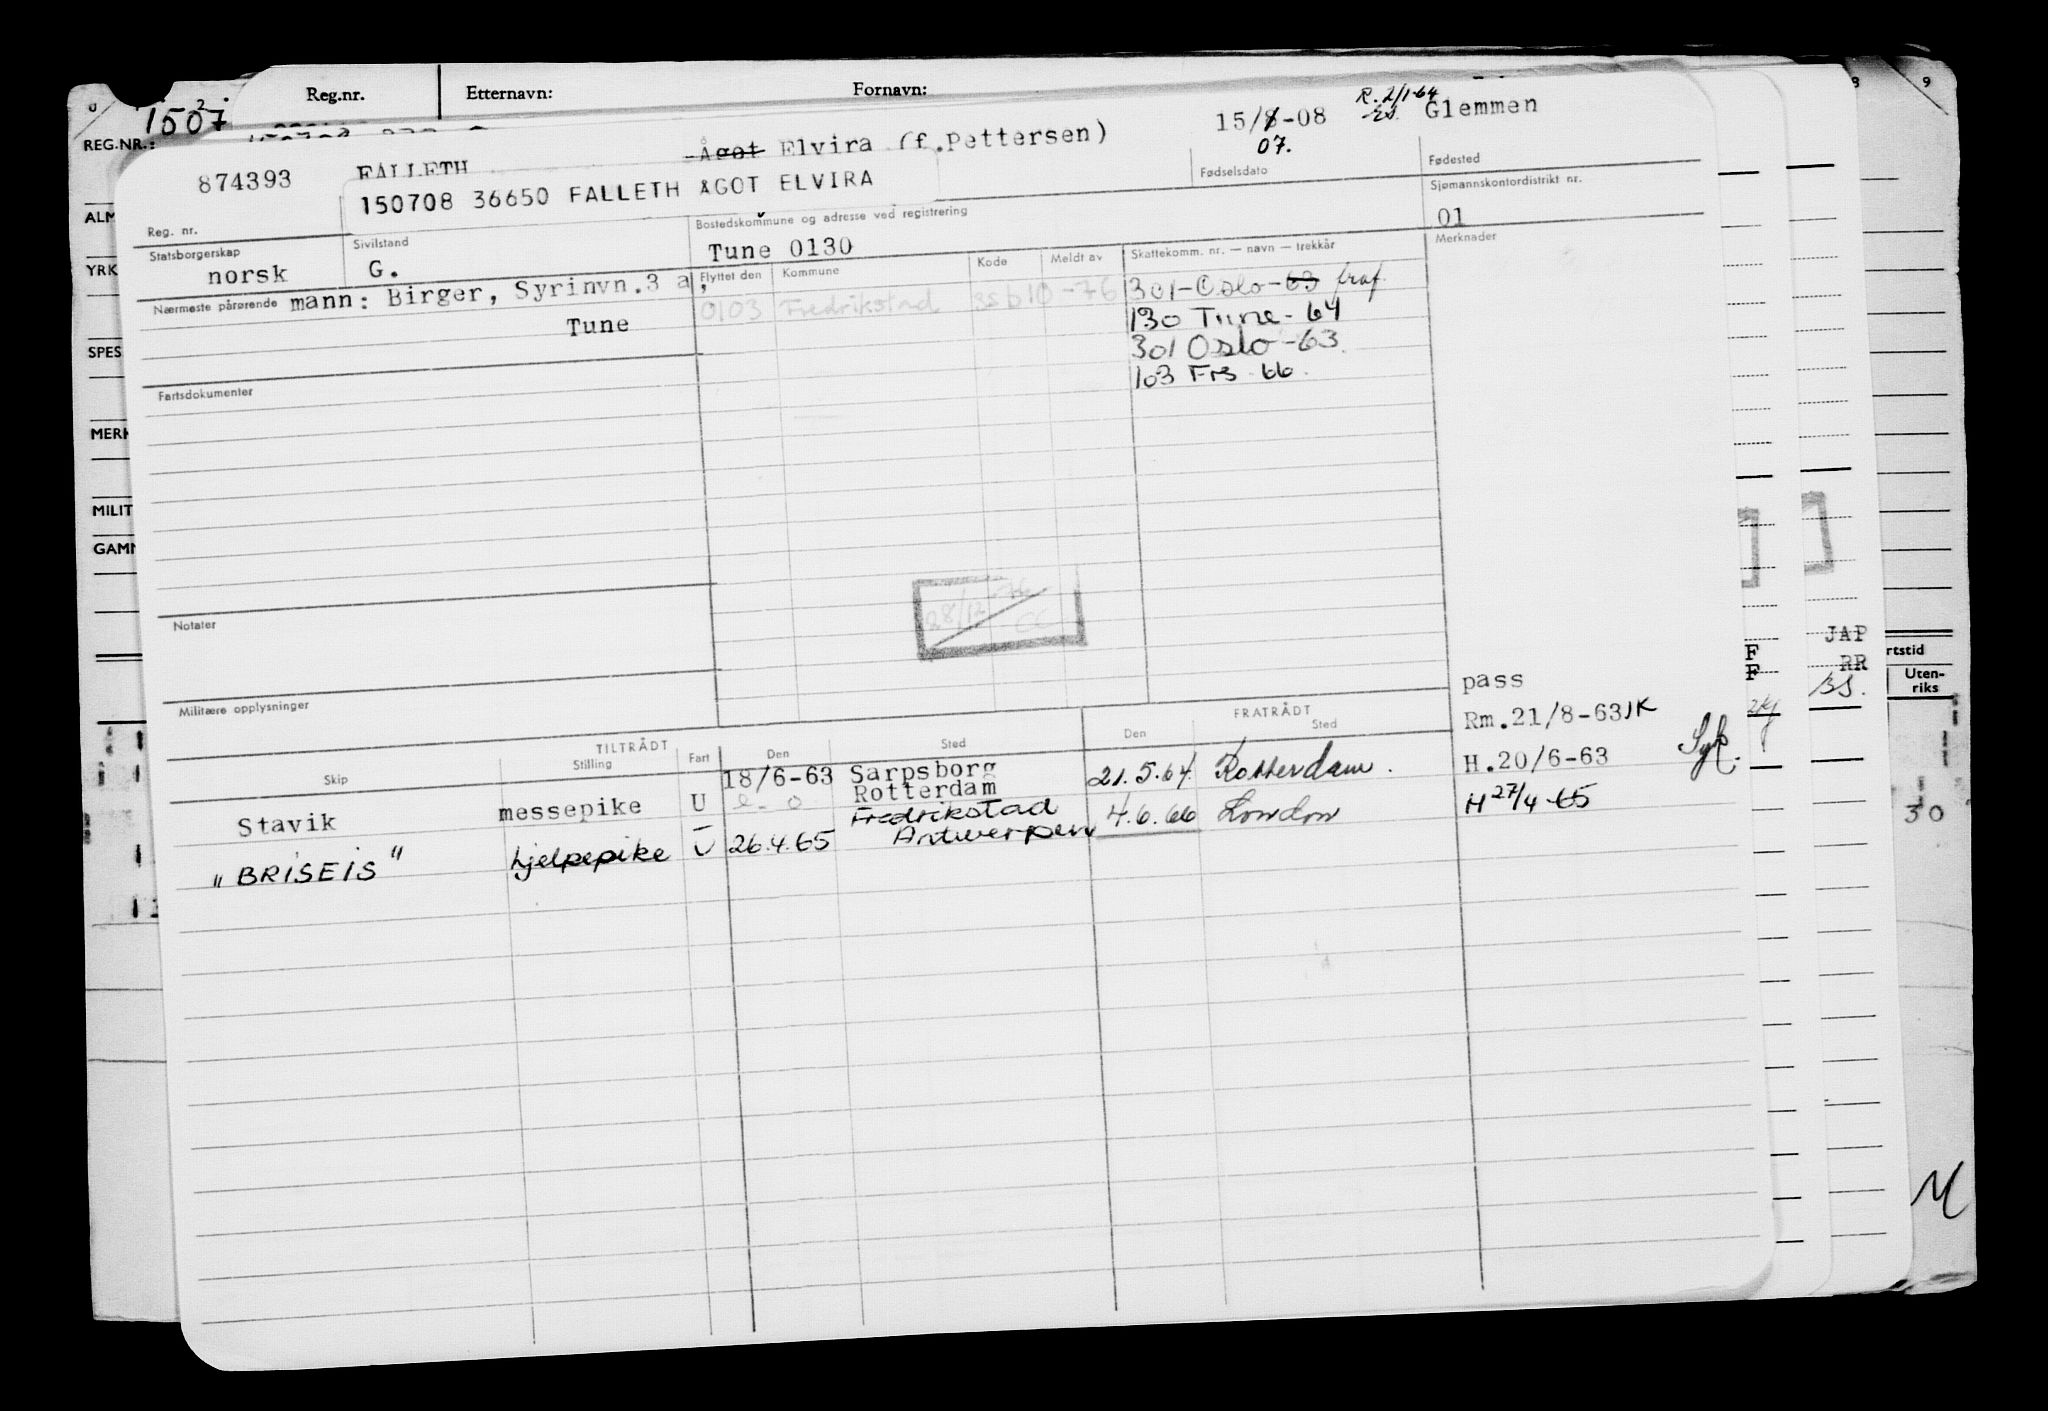 Reg.nr. Etternavn: Fornavn:
1507
REG.NR.:
874393 FALLETH Ågot Elvira (f.Pettersen) 15/8-08 07. R. 2/1-64 Glemmen
150708 36650 FALLETH ÅGOT ELVIRA
Reg. nr. Fødselsdato Fødested
Statsborgerskap Sivilstand Bostedskommune og adresse ved registrering Sjømannskontordistrikt nr.
norsk G. Tune 0130 01
Nærmeste pårørende mann: Birger, Syrinvn.3 a,
Tune
Flyttet den Kommune Kode Meldt av Skattekomm. nr. — navn — trekkår Merknader
0103 Fredrikstad 10-76 301-Oslo-63 fraf.
130 Tune-64
301 Oslo-63.
103 Frs 66.
Fartsdokumenter
Notater
28/12-76
Militære opplysninger
pass
Rm.21/8-63 JK
TILTRÅDT FRATRÅDT
Skip Stilling Fart Den Sted Den Sted
Stavik messepike U 18/6-63 Sarpsborg 21.5.64. Rotterdam. H.20/6-63
Rotterdam
"BRISEIS" hjelpepike U 26.4.65 Fredrikstad 4.6.66 London H 27/4-65
Antwerpen
ALM
YRK
SPES
MERK
MILIT
GAMM
F
F
JAP
RR
BS.
rtstid
Uten-
riks
30
8
9
M